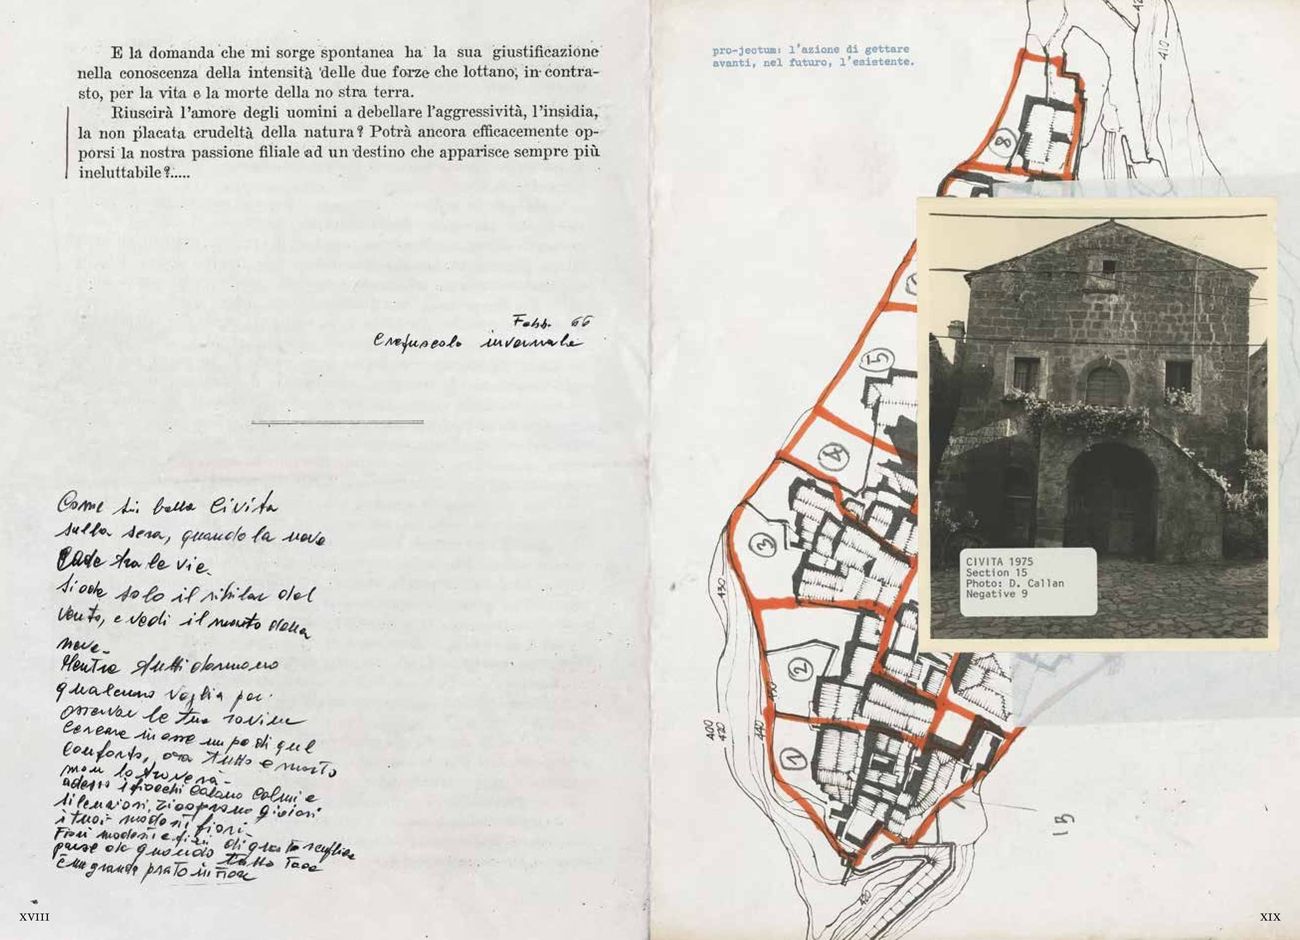 E la domanda che mi sorge spontanea ha la sua giustificazione
nella conoscenza della intensità delle due forze che lottano, in contra-
sto, per la vita e la morte della no stra terra.
Riuscirà l'amore degli uomini a debellare l'aggressività, l'insidia,
la non placata crudeltà della natura? Potrà ancora efficacemente op-
porsi la nostra passione filiale ad un destino che apparisce sempre più
ineluttabile?.....
Febb. 66
Crepuscolo invernale
Come sei bella Civita
sulla sera, quando la neve
cade tra le vie.
Si ode solo il sibilar del
vento, e vedi il manto della
neve.
Mentre tutti dormono
qualcuno veglia per
osservar le tue rovine
cercare in esse un po di quel
conforto, ora tutto è morto
non lo troverà
adesso i fiocchi calano calmi e
silenziosi, ricoprono
i tuoi modesti fiori.
Fiori modesti e
pare che quando tutto tace
è un grande prato in fiore
XVIII
pro-jectum: l'azione di gettare
avanti, nel futuro, l'esistente.
420
410
8
5
4
3
430
2
1
400
420
440
400
420
13
CIVITA 1975
Section 15
Photo: D. Callan
Negative 9
XIX